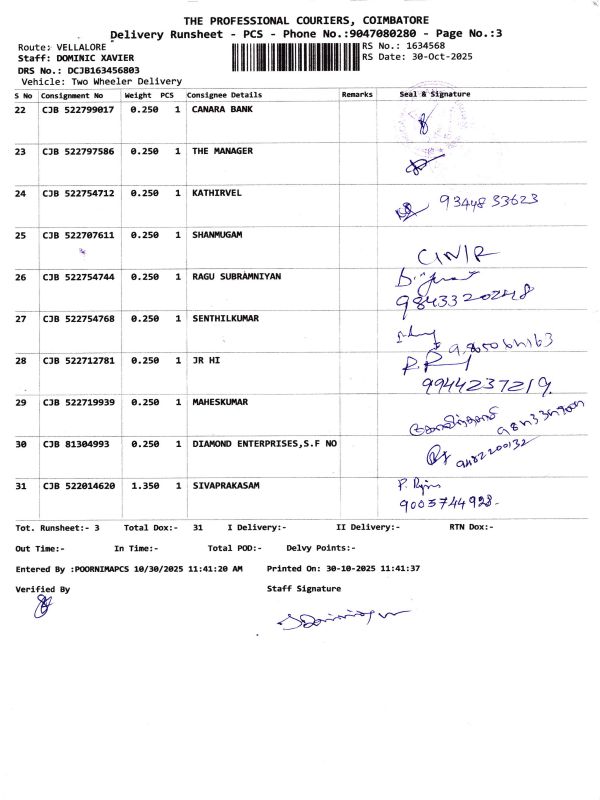 THE PROFESSIONAL COURIERS, COIMBATORE
Delivery Runsheet - PCS - Phone No.:9047080280 - Page No.:3
Route: VELLALORE
RS No.: 1634568
Staff: DOMINIC XAVIER
RS Date: 30-Oct-2025
DRS No.: DCJB163456803
Vehicle: Two Wheeler Delivery
S No Consignment No Weight PCS Consignee Details Remarks Seal & Signature
22 CJB 522799017 0.250 1 CANARA BANK
23 CJB 522797586 0.250 1 THE MANAGER
24 CJB 522754712 0.250 1 KATHIRVEL 9344833623
25 CJB 522707611 0.250 1 SHANMUGAM
26 CJB 522754744 0.250 1 RAGU SUBRAMNIYAN
27 CJB 522754768 0.250 1 SENTHILKUMAR
28 CJB 522712781 0.250 1 JR HI
9944237219.
29 CJB 522719939 0.250 1 MAHESKUMAR
30 CJB 81304993 0.250 1 DIAMOND ENTERPRISES,S.F NO
31 CJB 522014620 1.350 1 SIVAPRAKASAM
9003744928-
Tot. Runsheet:- 3 Total Dox:- 31 I Delivery:- II Delivery:- RTN Dox:-
Out Time:- In Time:- Total POD:- Delvy Points:-
Entered By :POORNIMAPCS 10/30/2025 11:41:20 AM Printed On: 30-10-2025 11:41:37
Verified By Staff Signature